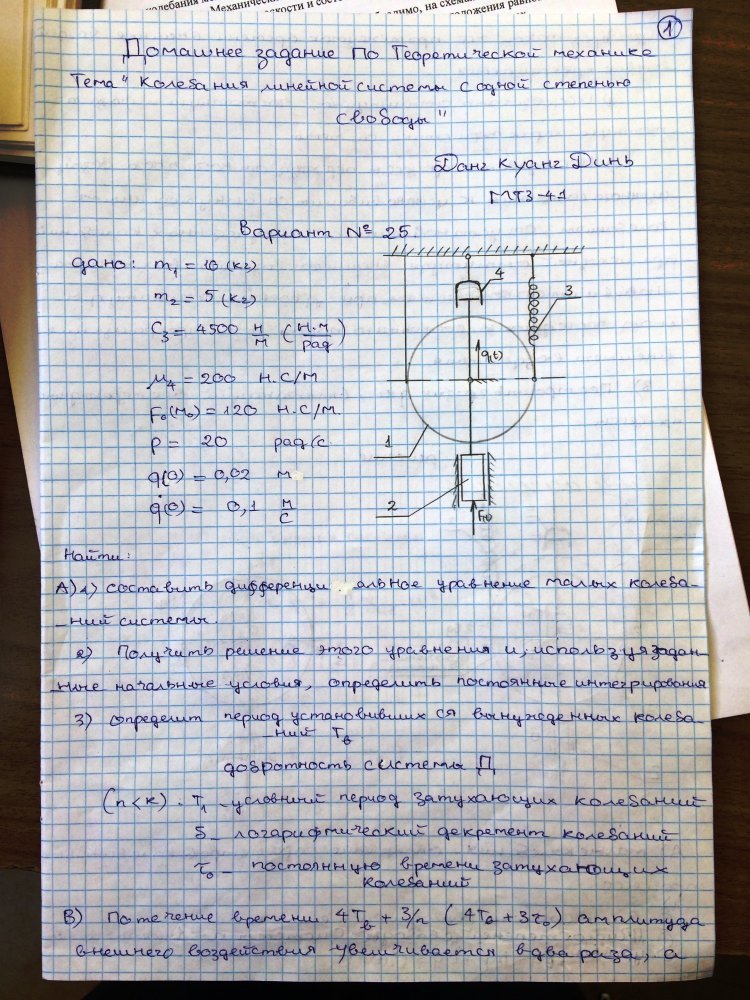 ①
Домашнее задание по Теоретической механике
Тема "Колебания линейной системы с одной степенью
свободы"
Данг Куанг Динь
МТ3-41
Вариант № 25
дано: m₁ = 10 (кг)
m₂ = 5 (кг)
C₃ = 4500 н/м (н.м/рад)
μ₄ = 200 н.с/м
F₀(M₀) = 120 н.с/м.
p = 20 рад/с
q(0) = 0,02 м
q̇(0) = 0,1 м/с
4
3
q(t)
1
2
F(t)
Найти:
А) 1) составить дифференциальное уравнение малых колеба-
-ний системы.
2) Получить решение этого уравнения и, используя задан-
-ные начальные условия, определить постоянные интегрирования
3) определит период установивших ся вынужденных колеба-
-ний Tв
добротность системы Д
(n<k). T₁ - условный период затухающих колебаний
δ - логарифмический декремент колебаний
τ₀ - постоянную времени затухающих
колебаний
В) По течение времени 4Tв + 3/n (4Tв + 3τ₀) амплитуда
внешнего воздействия увеличивается в два раза, а